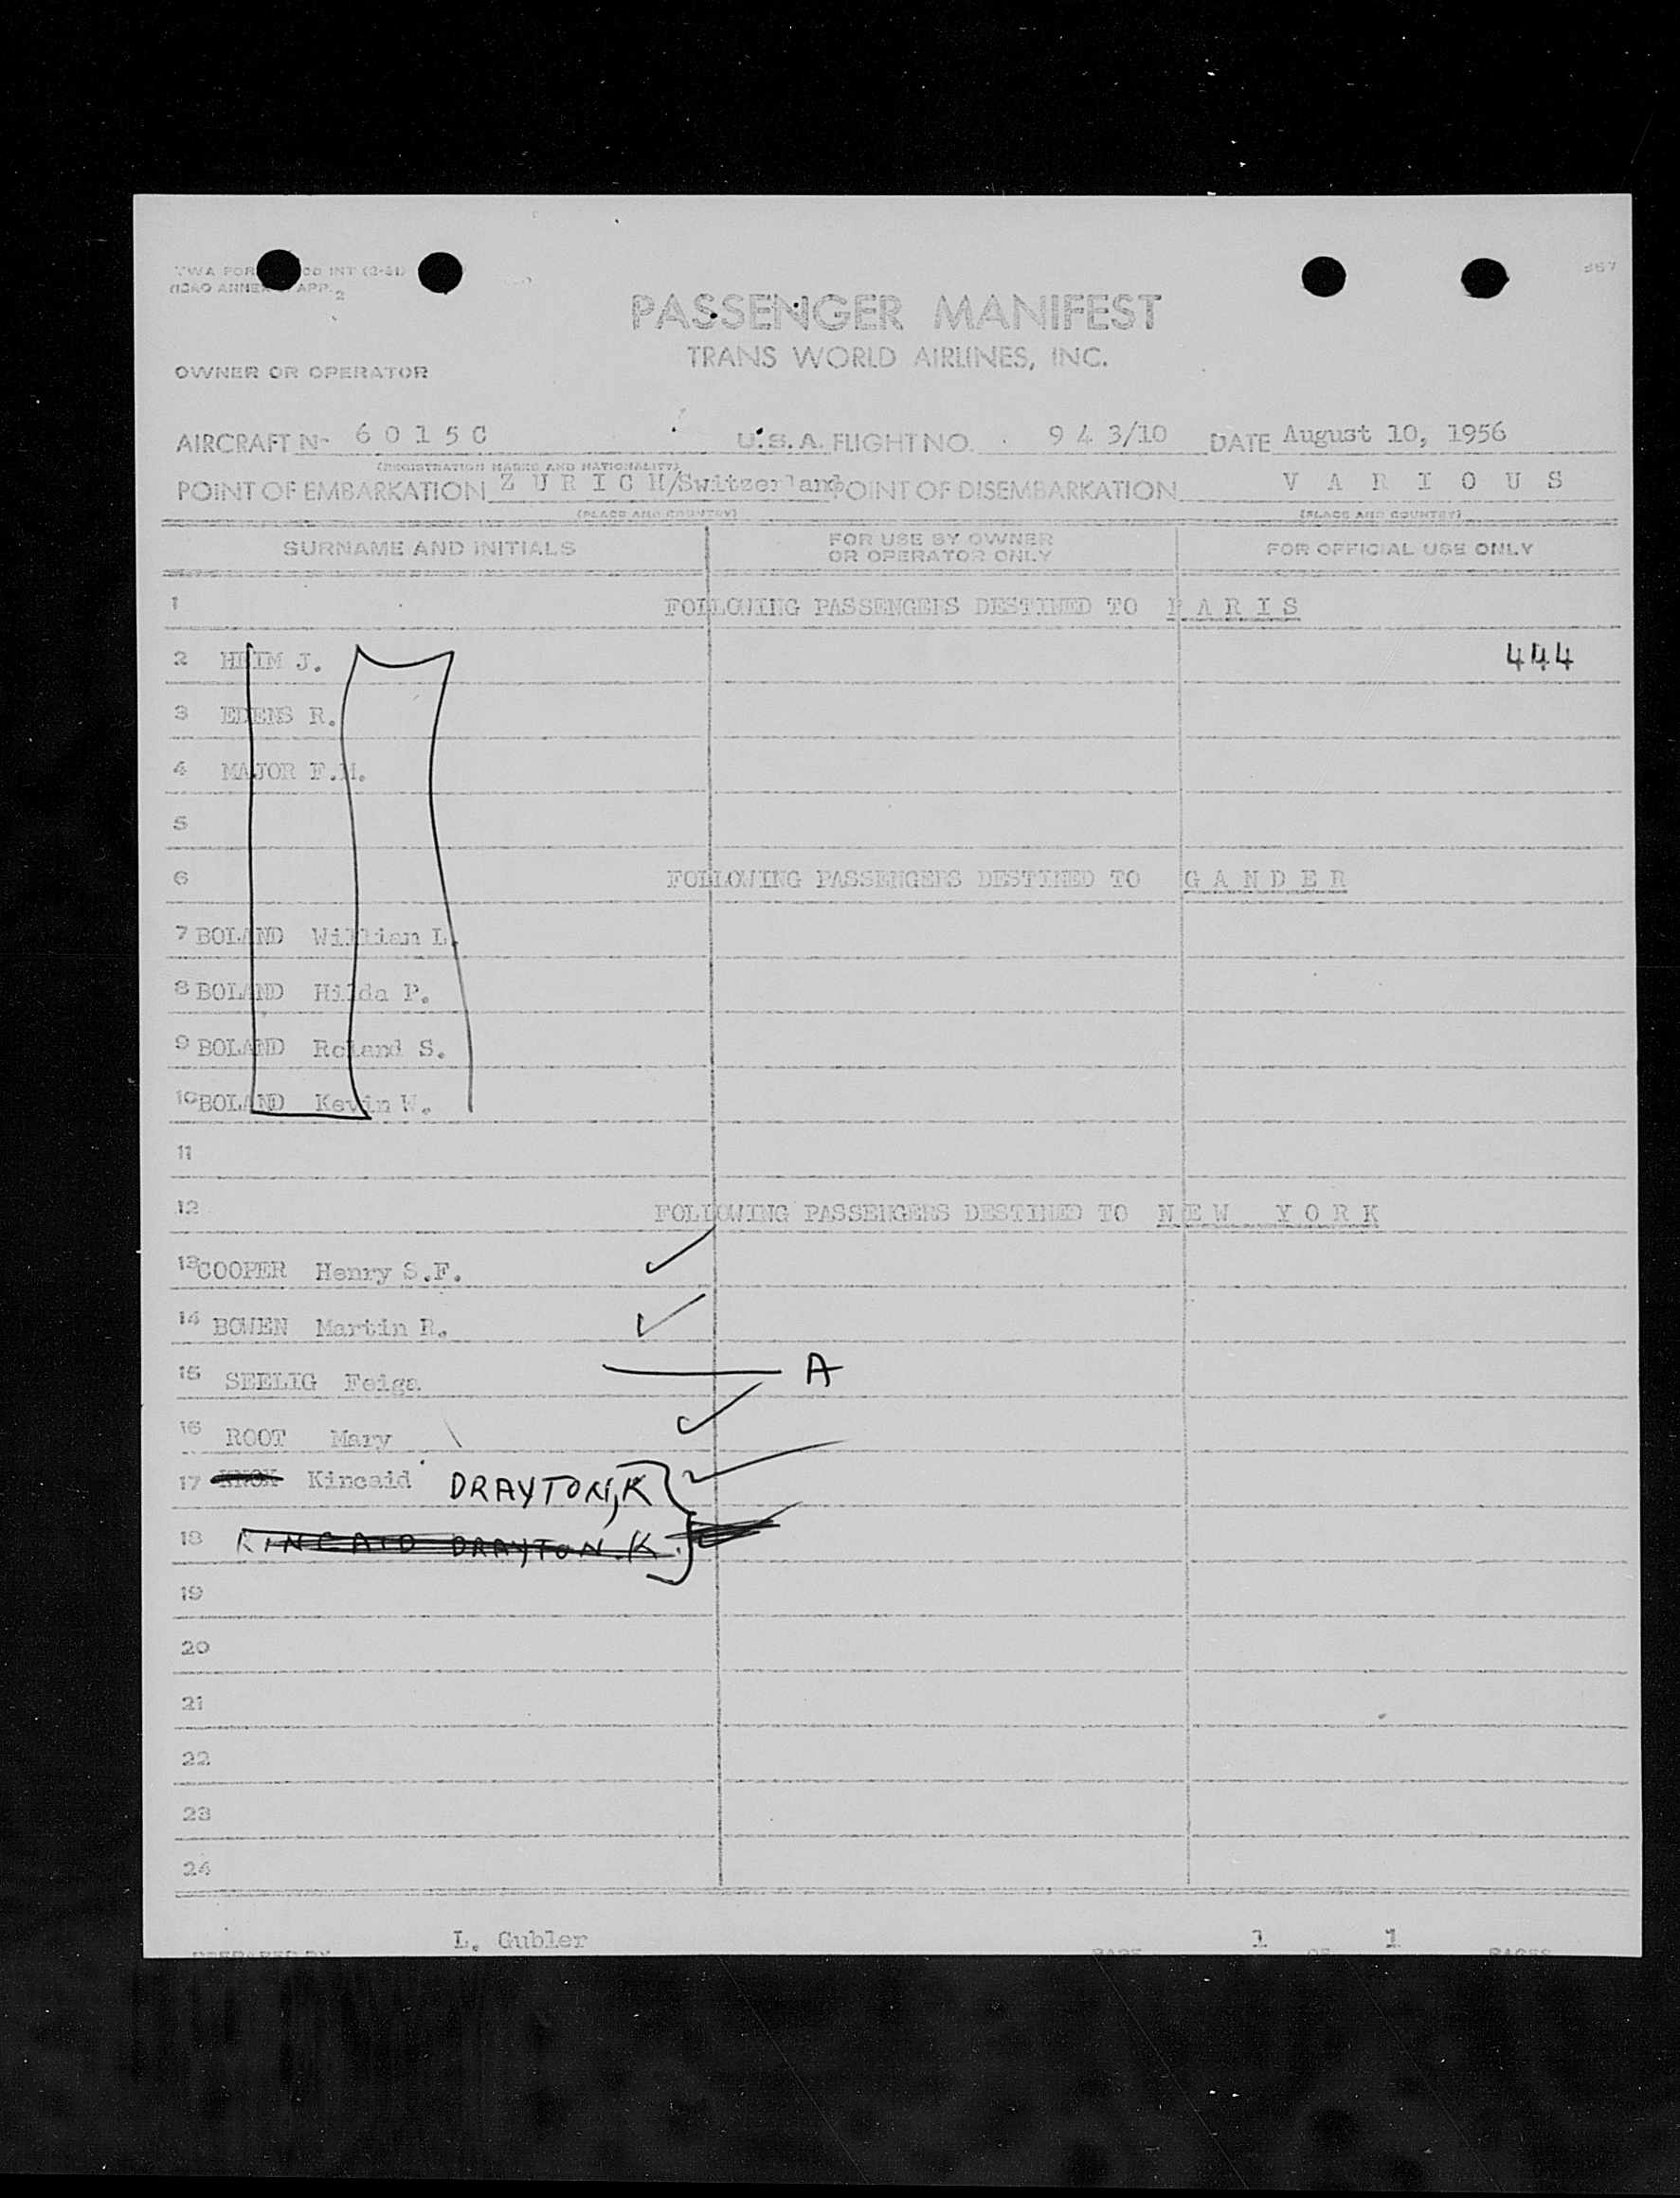 TWA FOR INT (2-51)
(ICAO ANNEX APP. 2
367
PASSENGER MANIFEST
TRANS WORLD AIRLINES, INC.
OWNER OR OPERATOR
AIRCRAFT Nº 6 0 1 5 C U.S.A. FLIGHT NO. 9 4 3/10 DATE August 10, 1956
(REGISTRATION MARKS AND NATIONALITY)
POINT OF EMBARKATION Z U R I C H/Switzerland POINT OF DISEMBARKATION V A R I O U S
(PLACE AND COUNTRY) (PLACE AND COUNTRY)
SURNAME AND INITIALS FOR USE BY OWNER OR OPERATOR ONLY FOR OFFICIAL USE ONLY
1 FOLLOWING PASSENGERS DESTINED TO P A R I S
2 HEIM J. 444
3 EDENS R.
4 MAJOR F.H.
5
6 FOLLOWING PASSENGERS DESTINED TO G A N D E R
7 BOLAND William L.
8 BOLAND Hilda P.
9 BOLAND Roland S.
10 BOLAND Kevin W.
11
12 FOLLOWING PASSENGERS DESTINED TO N E W Y O R K
13 COOPER Henry S.F.
14 BOWEN Martin R.
15 SEELIG Feiga A
16 ROOT Mary
17 KNOX Kincaid DRAYTON, K
18 KINCAID DRAYTON. K.
19
20
21
22
23
24
PREPARED BY L. Gubler PAGE 1 OF 1 PAGES